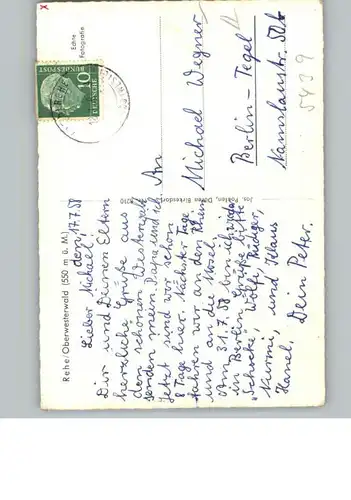 Rehe/Oberwesterwald (550 m ü. M.)
den 17.7.58
Lieber Michael!
Dir und Deinen Eltern
herzliche Grüße aus
den schönen Westerwald
senden mein Papa und ich.
Jetzt sind wir schon
8 Tage hier. Nächster Tage
fahren wir an den Rhein
und an die Mosel.
Am 31.7.58 bin ich
in Berlin. Grüße bitte
Wölfi, Rüdiger,
und Klaus
Hansl.
Dein Peter.
Jos. Düren Birkesdorf
Echte
Fotografie
10
DEUTSCHE
BUNDESPOST
An
Michael Wegner
Berlin-Tegel
Namslaustr.
5439